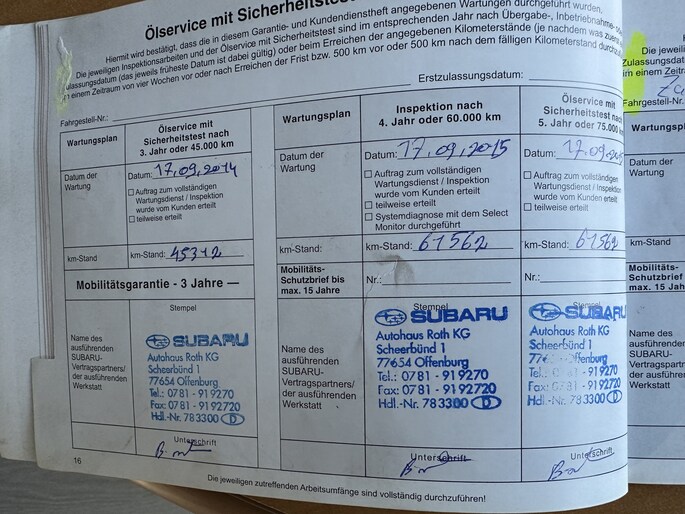 Ölservice mit Sicherheitstest
Hiermit wird bestätigt, dass die in diesem Garantie- und Kundendienstheft angegebenen Wartungen durchgeführt wurden.
Die jeweiligen Inspektionsarbeiten und der Ölservice mit Sicherheitstest sind im entsprechenden Jahr nach Übergabe-, Inbetriebnahme-
ulassungsdatum (das jeweils früheste Datum ist dabei gültig) oder beim Erreichen der angegebenen Kilometerstände (je nachdem was
in einem Zeitraum von vier Wochen vor oder nach Erreichen der Frist bzw. 500 km vor oder 500 km nach dem fälligen Kilometerstand
Erstzulassungsdatum:
Fahrgestell-Nr.:
Wartungsplan
Ölservice mit
Sicherheitstest nach
3. Jahr oder 45.000 km
Datum der
Wartung
Datum: 17.09.2014
☐ Auftrag zum vollständigen
Wartungsdienst / Inspektion
wurde vom Kunden erteilt
☐ teilweise erteilt
km-Stand
km-Stand: 45312
Mobilitätsgarantie - 3 Jahre —
Stempel
Name des
ausführenden
SUBARU-
Vertragspartners/
der ausführenden
Werkstatt
SUBARU
Autohaus Roth KG
Scheerbünd 1
77654 Offenburg
Tel.: 0781 - 919270
Fax: 0781 - 9192720
Hdl.-Nr. 783300 D
Unterschrift
16
Wartungsplan
Inspektion nach
4. Jahr oder 60.000 km
Datum der
Wartung
Datum: 17.09.2015
☐ Auftrag zum vollständigen
Wartungsdienst / Inspektion
wurde vom Kunden erteilt
☐ teilweise erteilt
☐ Systemdiagnose mit dem Select
Monitor durchgeführt
km-Stand:
km-Stand: 61562
Mobilitäts-
Schutzbrief bis
max. 15 Jahre
Nr.:
Stempel
Name des
ausführenden
SUBARU-
Vertragspartners/
der ausführenden
Werkstatt
SUBARU
Autohaus Roth KG
Scheerbünd 1
77654 Offenburg
Tel.: 0781 - 919270
Fax: 0781 - 9192720
Hdl.-Nr. 783300 D
Unterschrift
Ölservice mit
Sicherheitstest nach
5. Jahr oder 75.000
Datum: 17.09.2015
☐ Auftrag zum vollständigen
Wartungsdienst / Inspektion
wurde vom Kunden erteilt
☐ teilweise erteilt
km-Stand: 61562
Nr.:
Stempel
SUBARU
Autohaus Roth KG
Scheerbünd 1
Offenburg
919270
9192720
Hdl.-Nr. 783300 D
Unterschrift
Die jeweiligen zutreffenden Arbeitsumfänge sind vollständig durchzuführen!
Die jeweiligen
Zulassungsdatum
im einem
Fahrgestell-Nr.
Wartungsplan
Datum der
Wartung
km-Stand
Mobilitäts-
Schutzbrief
max. 15 Jahre
Name des